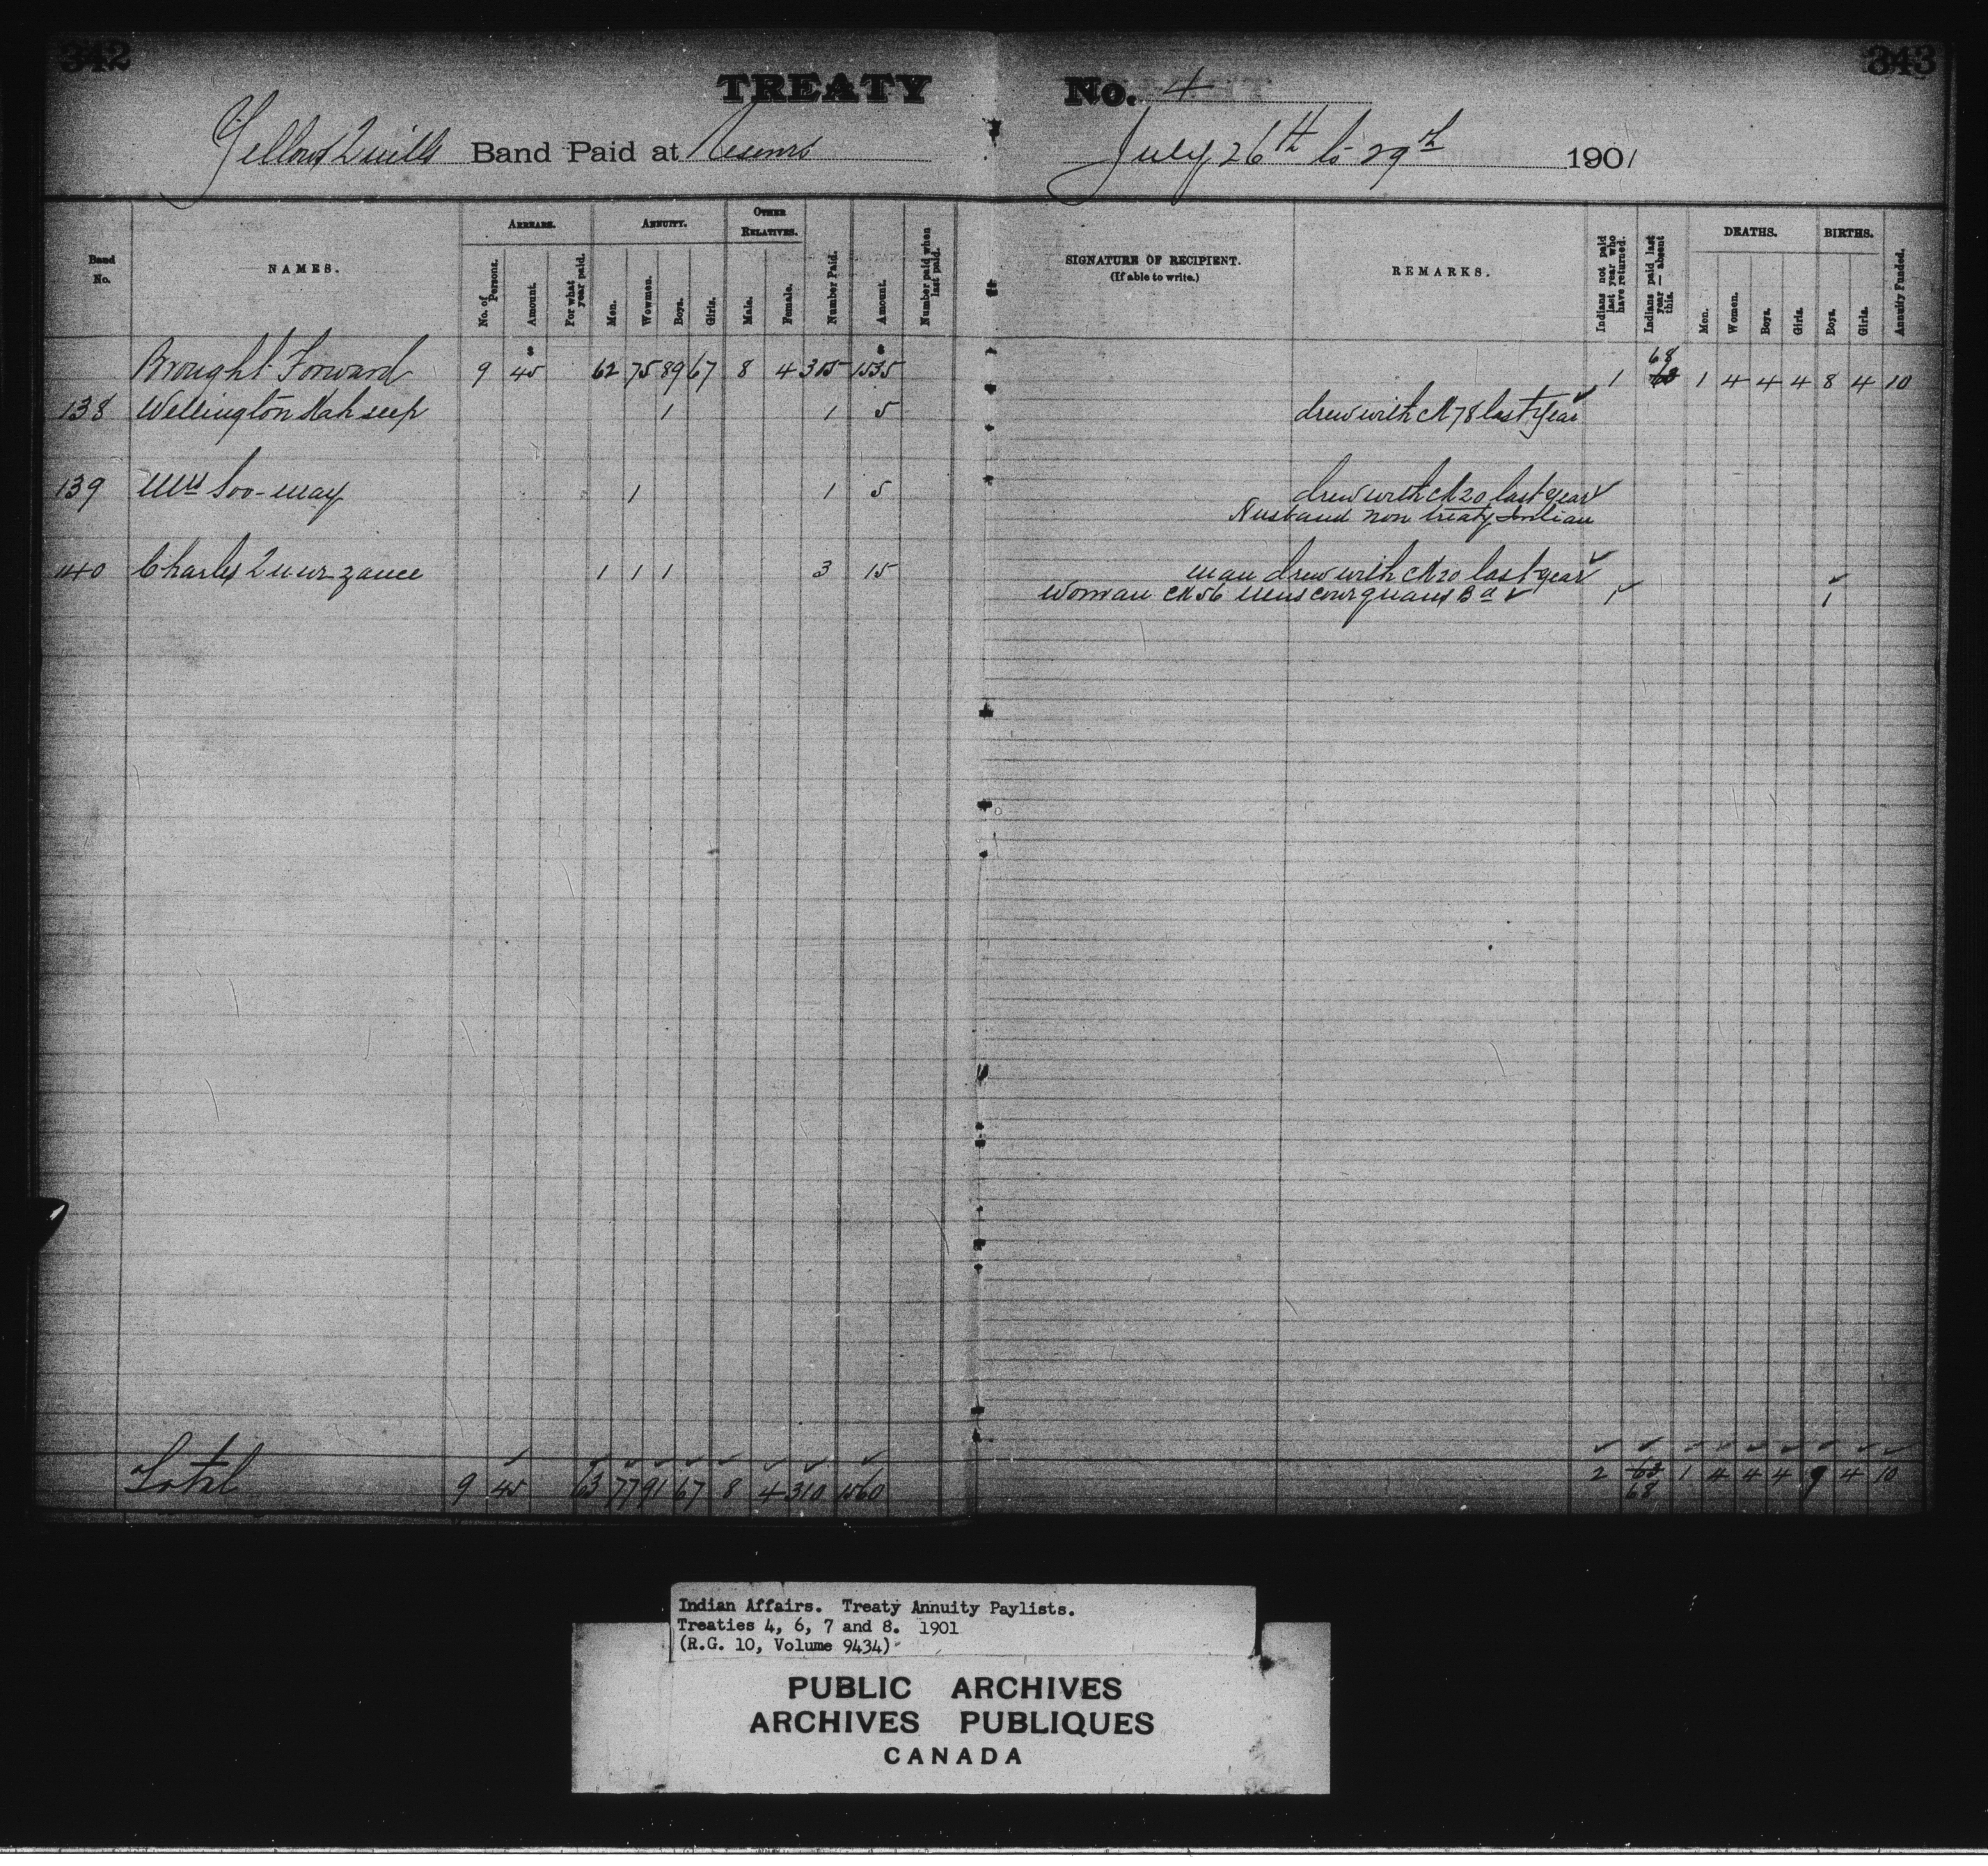 342
343
TREATY No. 4
Yellow Quills Band Paid at Reserve July 26th to 29th 1901
Band No.
NAMES.
ARREARS.
No. of Persons.
Amount.
For what year paid.
ANNUITY.
Men.
Wowmen.
Boys.
Girls.
OTHER RELATIVES.
Male.
Female.
Number Paid.
Amount.
Number paid when last paid.
SIGNATURE OF RECIPIENT.
(If able to write.)
REMARKS.
Indians not paid last year who have returned.
Indians paid last year — absent this.
DEATHS.
Men.
Women.
Boys.
Girls.
BIRTHS.
Boys.
Girls.
Annuity Funded.
$ $ 68
Brought Forward 9 45 62 75 89 67 8 4 305 1535 1 1 4 4 4 8 4 10
138 Wellington Nah seep 1 1 5 drew with No 78 last year
139 Mrs Soo-may 1 1 5 drew with No 20 last year
Husband non treaty Indian
140 Charles 1 1 1 3 15 man drew with No 20 last year
Woman No 56 Bd 1 1
Total 9 45 63 77 91 67 8 4 310 1560 2 63 1 4 4 4 9 4 10
68
Indian Affairs. Treaty Annuity Paylists.
Treaties 4, 6, 7 and 8. 1901
(R.G. 10, Volume 9434)
PUBLIC ARCHIVES
ARCHIVES PUBLIQUES
CANADA